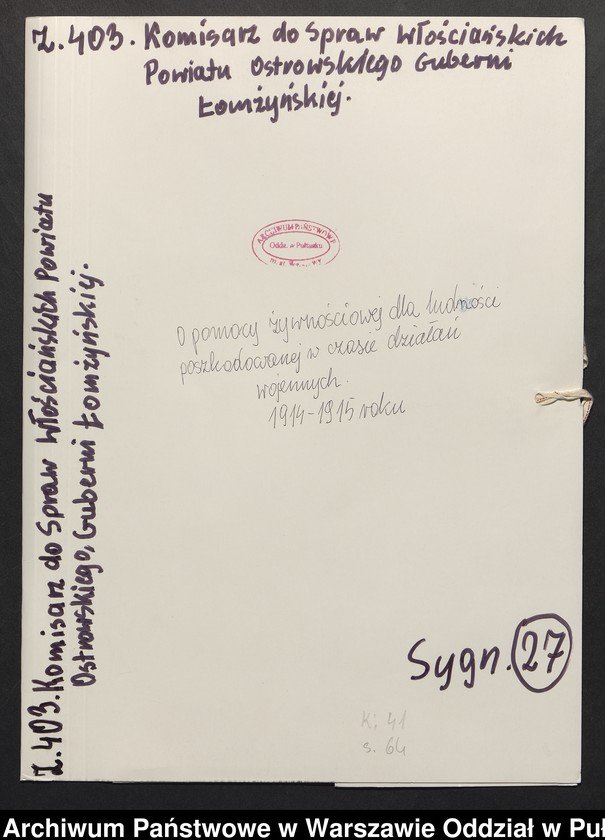 Z.403. Komisarz do Spraw Włościańskich
Powiatu Ostrowskiego Guberni
Łomżyńskiej.
Z.403. Komisarz do Spraw Włościańskich Powiatu
Ostrowskiego, Guberni Łomżyńskiej.
ARCHIWUM PAŃSTWOWE
Oddz. w Pułtusku
O pomocy żywnościowej dla ludności
poszkodowanej w czasie działań
wojennych.
1914-1915 roku
Sygn. 27
K: 41
s. 64
Archiwum Państwowe w Warszawie Oddział w Puł